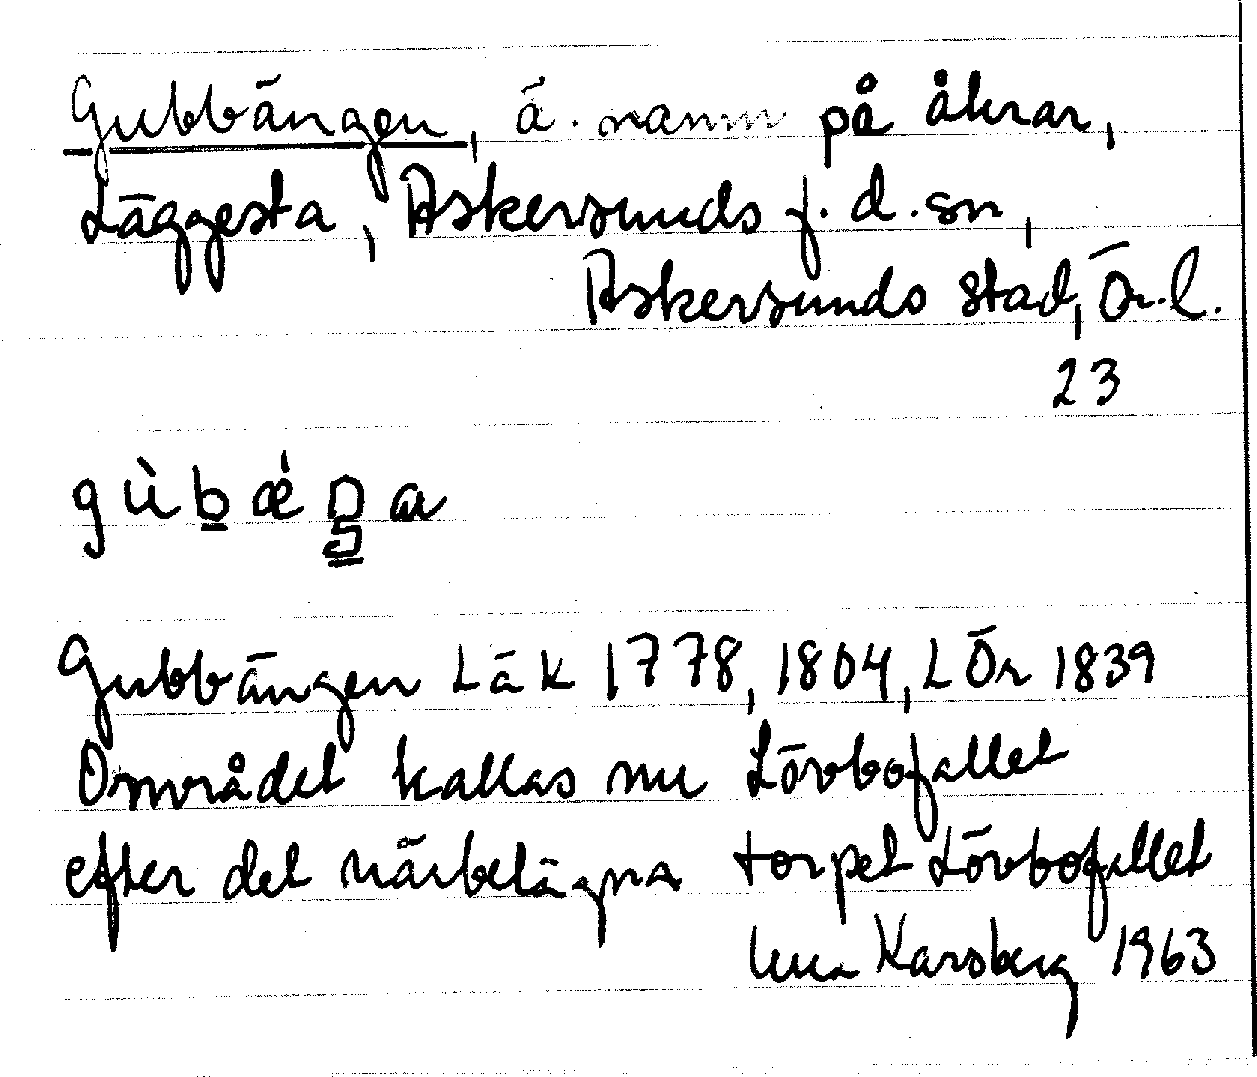 Gubbängen, ä. namn på åkrar,
Läggesta, Askersunds f.d. sn,
Askersunds stad, Ör. l.
23
gùbǽŋa
Gubbängen Läk 1778, 1804, LÖr 1839
Området kallas nu Lövbofallet
efter det närbelägna torpet Lövbofallet
Karsberg 1963